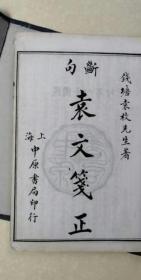 錢塘袁枚先生著
斷句
袁文箋正
上海中原書局印行